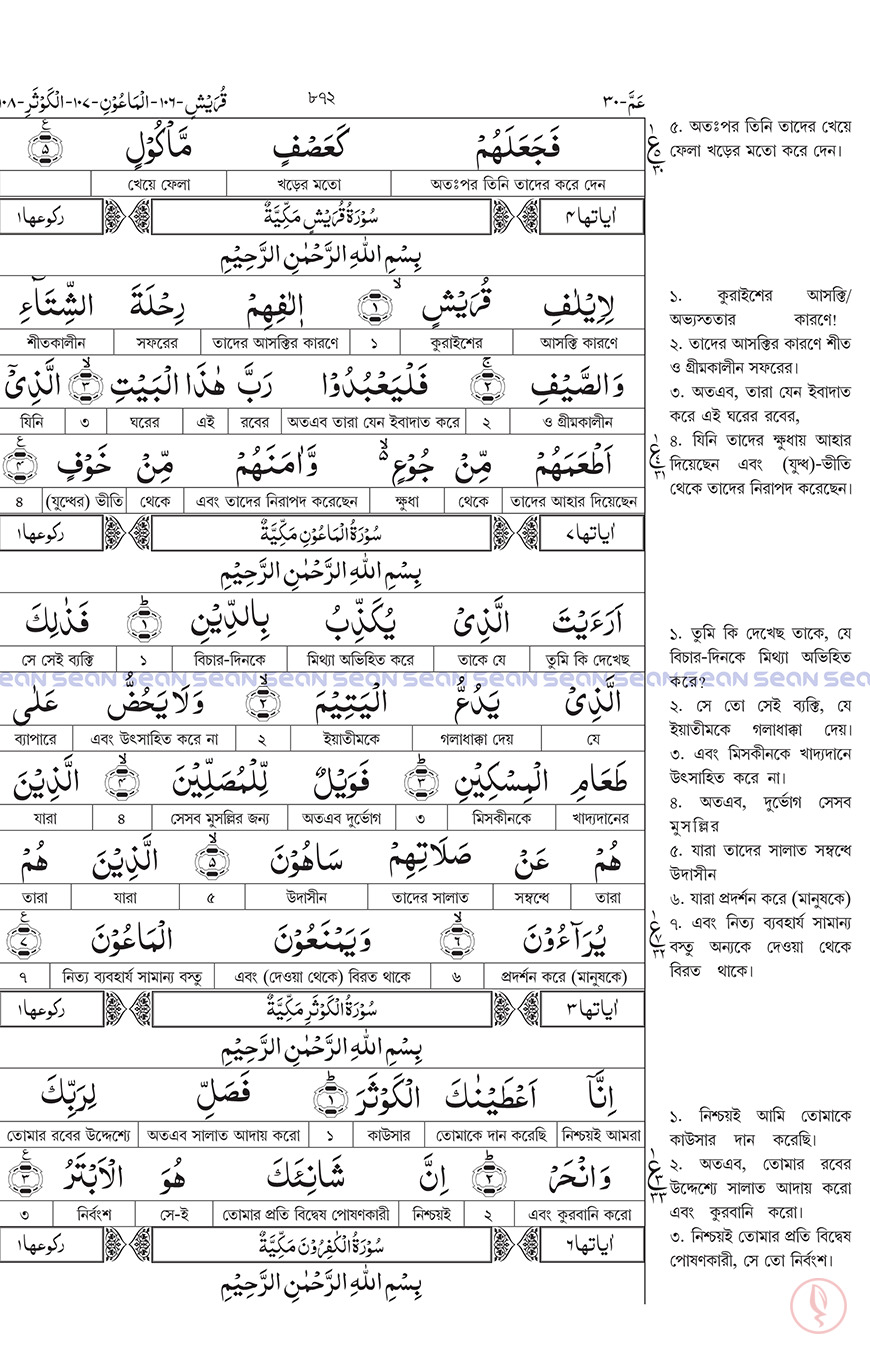 عَمَّ-٣٠ ٨٩٢ قُرَيْشٍ-١٠٦-الْمَاعُوْنِ-١٠٧-الْكَوْثَرِ-١٠٨
فَجَعَلَهُمْ كَعَصْفٍ مَّاْكُوْلٍ ۝٥
অতঃপর তিনি তাদের করে দেন খড়ের মতো খেয়ে ফেলা
اٰیاتها٤ سُوْرَةُ قُرَيْشٍ مَكِّيَّةٌ رکوعها١
بِسْمِ اللهِ الرَّحْمٰنِ الرَّحِيْمِ
لِاِيْلٰفِ قُرَيْشٍ ۙ۝١ اٖلٰفِهِمْ رِحْلَةَ الشِّتَآءِ
আসক্তি কারণে কুরাইশের ১ তাদের আসক্তির কারণে সফরের শীতকালীন
وَالصَّيْفِ ۚ۝٢ فَلْيَعْبُدُوْا رَبَّ هٰذَا الْبَيْتِ ۙ۝٣ الَّذِيْٓ
ও গ্রীমকালীন ২ অতএব তারা যেন ইবাদাত করে রবের এই ঘরের ৩ যিনি
اَطْعَمَهُمْ مِّنْ جُوْعٍ ۙ۬ وَّاٰمَنَهُمْ مِّنْ خَوْفٍ ۝٤
তাদের আহার দিয়েছেন থেকে ক্ষুধা এবং তাদের নিরাপদ করেছেন থেকে (যুদ্ধের) ভীতি ৪
اٰیاتها٧ سُوْرَةُ الْمَاعُوْنِ مَكِّيَّةٌ رکوعها١
بِسْمِ اللهِ الرَّحْمٰنِ الرَّحِيْمِ
اَرَءَيْتَ الَّذِيْ يُكَذِّبُ بِالدِّيْنِ ؕ۝١ فَذٰلِكَ
তুমি কি দেখেছ তাকে যে মিথ্যা অভিহিত করে বিচার-দিনকে ১ সে সেই ব্যক্তি
SEAN SEAN SEAN SEAN SEAN SEAN SEAN SEAN SEAN SEAN SEAN SEAN
الَّذِيْ يَدُعُّ الْيَتِيْمَ ۙ۝٢ وَلَا يَحُضُّ عَلٰى
যে গলাধাক্কা দেয় ইয়াতীমকে ২ এবং উৎসাহিত করে না ব্যাপারে
طَعَامِ الْمِسْكِيْنِ ؕ۝٣ فَوَيْلٌ لِّلْمُصَلِّيْنَ ۙ۝٤ الَّذِيْنَ
খাদ্যদানের মিসকীনকে ৩ অতএব দুর্ভোগ সেসব মুসল্লির জন্য ৪ যারা
هُمْ عَنْ صَلَاتِهِمْ سَاهُوْنَ ۙ۝٥ الَّذِيْنَ هُمْ
তারা সম্বন্ধে তাদের সালাত উদাসীন ৫ যারা তারা
يُرَآءُوْنَ ۙ۝٦ وَيَمْنَعُوْنَ الْمَاعُوْنَ ۝٧
প্রদর্শন করে (মানুষকে) ৬ এবং (দেওয়া থেকে) বিরত থাকে নিত্য ব্যবহার্য সামান্য বস্তু ৭
اٰیاتها٣ سُوْرَةُ الْكَوْثَرِ مَكِّيَّةٌ رکوعها١
بِسْمِ اللهِ الرَّحْمٰنِ الرَّحِيْمِ
اِنَّاۤ اَعْطَيْنٰكَ الْكَوْثَرَ ؕ۝١ فَصَلِّ لِرَبِّكَ
নিশ্চয়ই আমরা তোমাকে দান করেছি কাউসার ১ অতএব সালাত আদায় করো তোমার রবের উদ্দেশ্যে
وَانْحَرْ ؕ۝٢ اِنَّ شَانِئَكَ هُوَ الْاَبْتَرُ ۝٣
এবং কুরবানি করো ২ নিশ্চয়ই তোমার প্রতি বিদ্বেষ পোষণকারী সে-ই নির্বংশ ৩
اٰیاتها٦ سُوْرَةُ الْكٰفِرُوْنَ مَكِّيَّةٌ رکوعها١
بِسْمِ اللهِ الرَّحْمٰنِ الرَّحِيْمِ
৫. অতঃপর তিনি তাদের খেয়ে
ফেলা খড়ের মতো করে দেন।
১. কুরাইশের আসক্তি/
অভ্যস্ততার কারণে!
২. তাদের আসক্তির কারণে শীত
ও গ্রীমকালীন সফরের।
৩. অতএব, তারা যেন ইবাদাত
করে এই ঘরের রবের,
৪. যিনি তাদের ক্ষুধায় আহার
দিয়েছেন এবং (যুদ্ধ)-ভীতি
থেকে তাদের নিরাপদ করেছেন।
১. তুমি কি দেখেছ তাকে, যে
বিচার-দিনকে মিথ্যা অভিহিত
করে?
২. সে তো সেই ব্যক্তি, যে
ইয়াতীমকে গলাধাক্কা দেয়।
৩. এবং মিসকীনকে খাদ্যদানে
উৎসাহিত করে না।
৪. অতএব, দুর্ভোগ সেসব
মুসল্লির
৫. যারা তাদের সালাত সম্বন্ধে
উদাসীন
৬. যারা প্রদর্শন করে (মানুষকে)
৭. এবং নিত্য ব্যবহার্য সামান্য
বস্তু অন্যকে দেওয়া থেকে
বিরত থাকে।
১. নিশ্চয়ই আমি তোমাকে
কাউসার দান করেছি।
২. অতএব, তোমার রবের
উদ্দেশ্যে সালাত আদায় করো
এবং কুরবানি করো।
৩. নিশ্চয়ই তোমার প্রতি বিদ্বেষ
পোষণকারী, সে তো নির্বংশ।